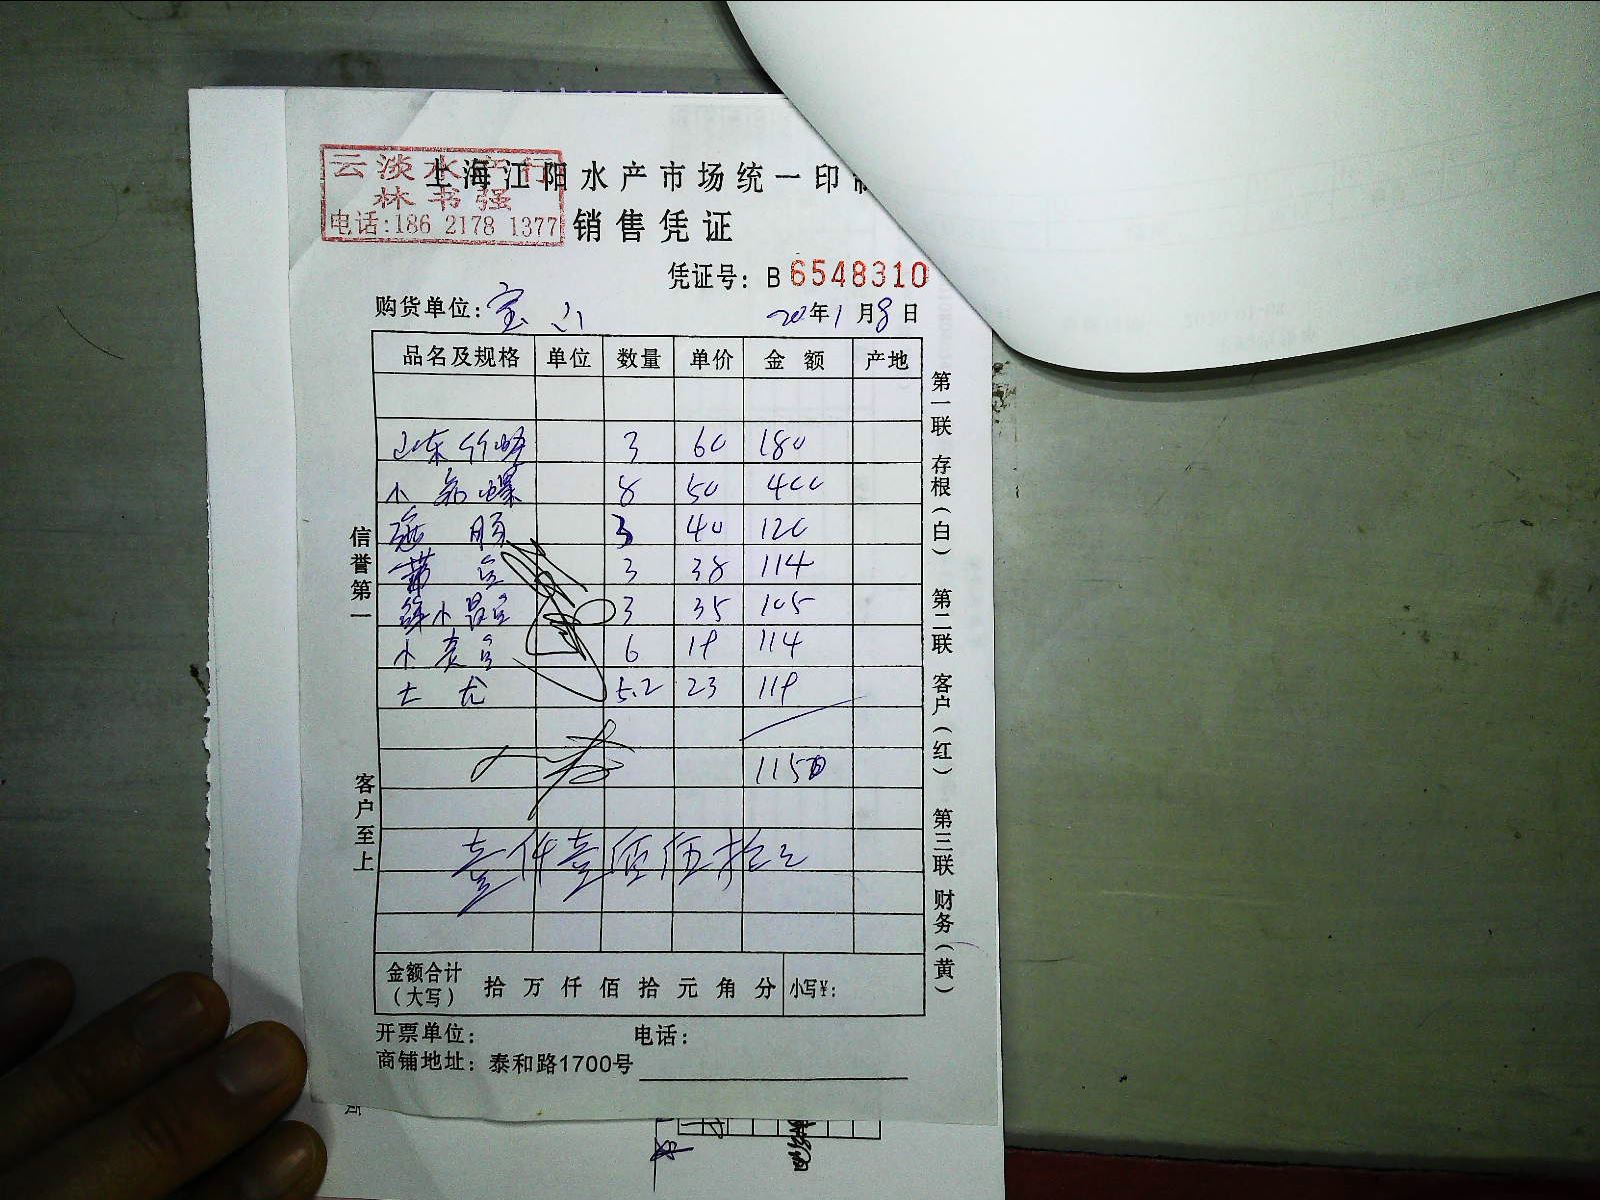 云淡水产行
林书强
电话:186 2178 1377
上海江阳水产市场统一印制
销售凭证
凭证号: B 6548310
购货单位: 宝山 20年1月8日
品名及规格 单位 数量 单价 金额 产地
山东竹蛏 3 60 180
小 螺 8 50 400
肠 3 40 120
3 38 114
小 3 35 105
小 6 19 114
5.2 23 119
1150
壹仟壹佰伍拾元
金额合计(大写) 拾 万 仟 佰 拾 元 角 分 小写¥:
开票单位: 电话:
商铺地址: 泰和路1700号
信誉第一
客户至上
第一联 存根(白) 第二联 客户(红) 第三联 财务(黄)